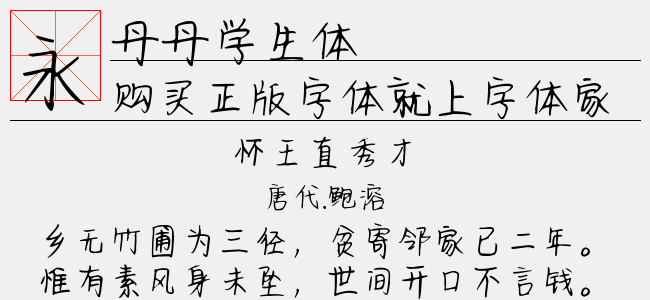 永
丹丹学生体
购买正版字体就上字体家
怀王直秀才
唐代.鲍溶
乡无竹圃为三径，贫寄邻家已二年。
惟有素风身未坠，世间开口不言钱。